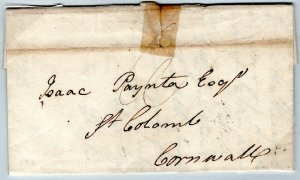 Isaac Paynta Esqr
St Colomb
Cornwall